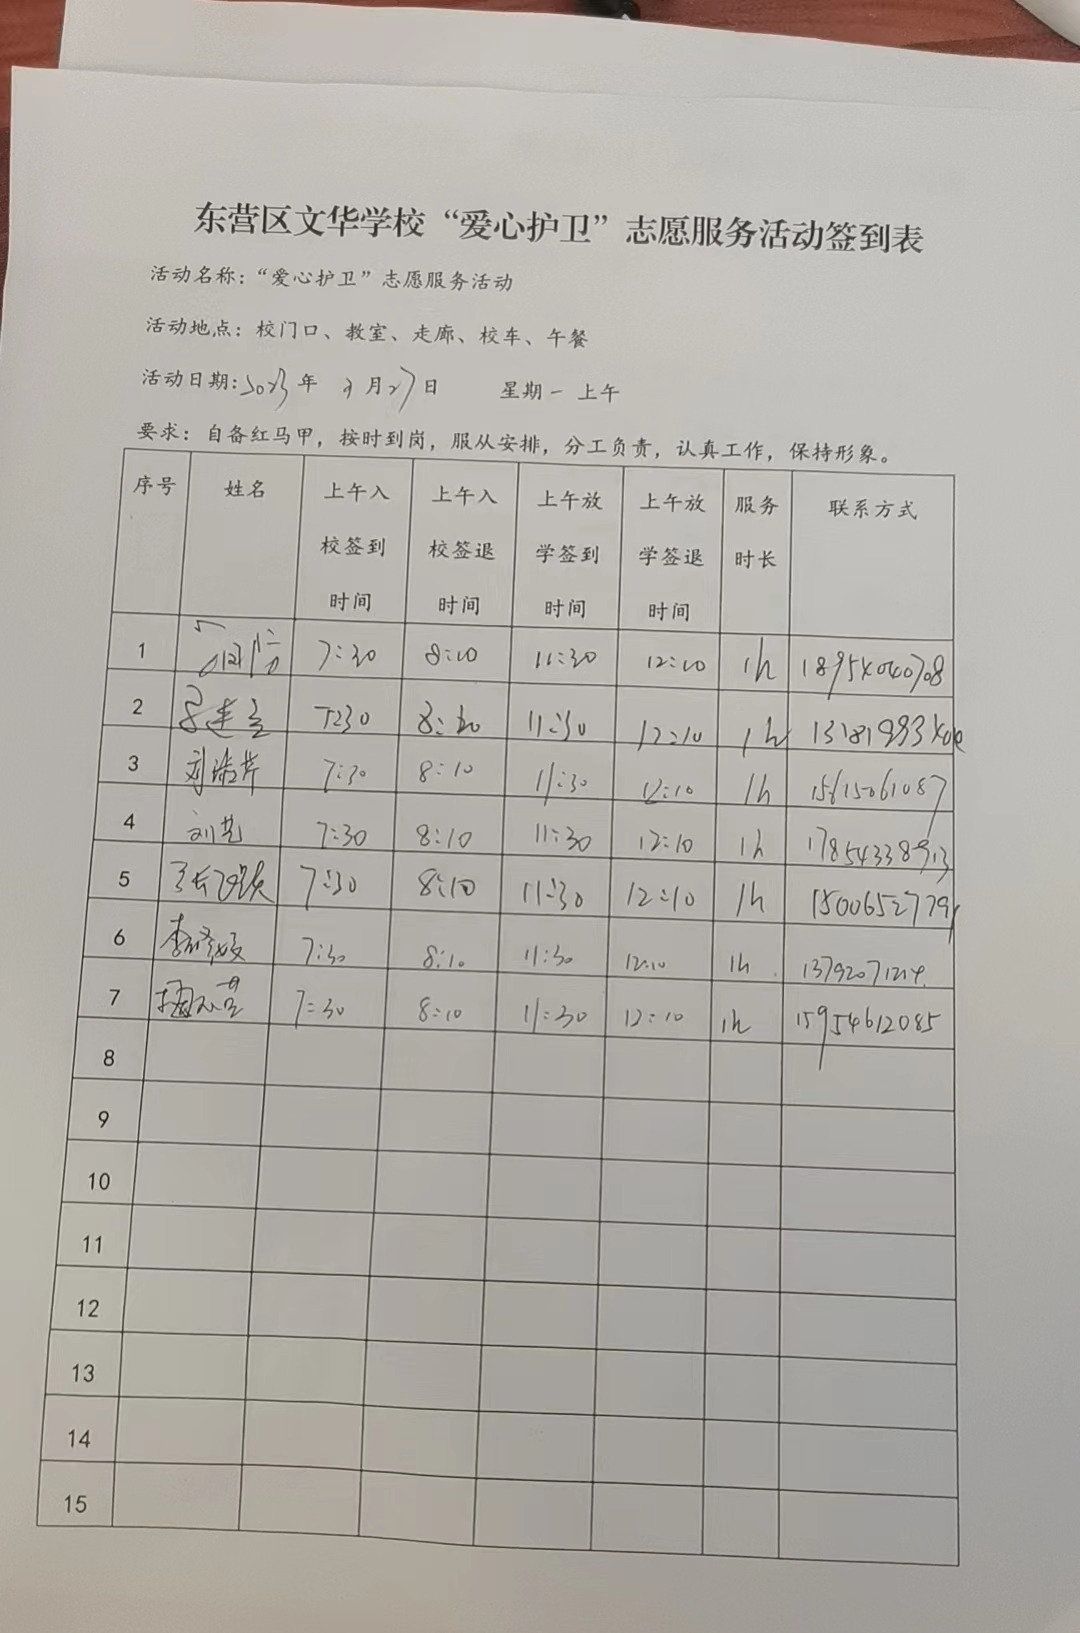 东营区文华学校“爱心护卫”志愿服务活动签到表
活动名称：“爱心护卫”志愿服务活动
活动地点：校门口、教室、走廊、校车、午餐
活动日期：2023年 2月27日 星期一 上午
要求：自备红马甲，按时到岗，服从安排，分工负责，认真工作，保持形象。
序号 姓名 上午入校签到时间 上午入校签退时间 上午放学签到时间 上午放学签退时间 服务时长 联系方式
1 7:30 8:10 11:30 12:10 1h 18954040708
2 7:30 11:30 12:10 1h
3 7:30 8:10 11:30 12:10 1h 15615061087
4 刘艺 7:30 8:10 11:30 12:10 1h 17854338913
5 7:30 8:10 11:30 12:10 1h
6 7:30 8:10 11:30 12:10 1h 13792071214
7 7:30 8:10 11:30 12:10 1h 15954612085
8
9
10
11
12
13
14
15